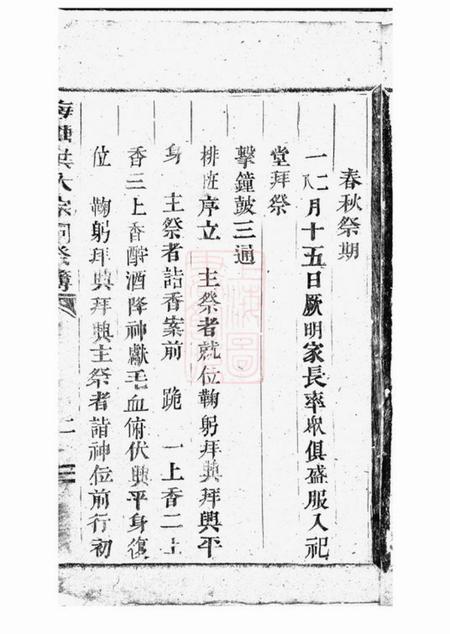 春秋祭期
一二八月十五日厥明家長率眾俱盛服入祀
堂拜祭
擊鐘鼓三通
排班序立　主祭者就位鞠躬拜興拜興平
身　主祭者詣香案前　跪　一上香二上
香三上香酹酒降神獻毛血俯伏興平身復
位　鞠躬拜興拜興主祭者詣神位前行初
大宗祠祭簿
二
上海圖